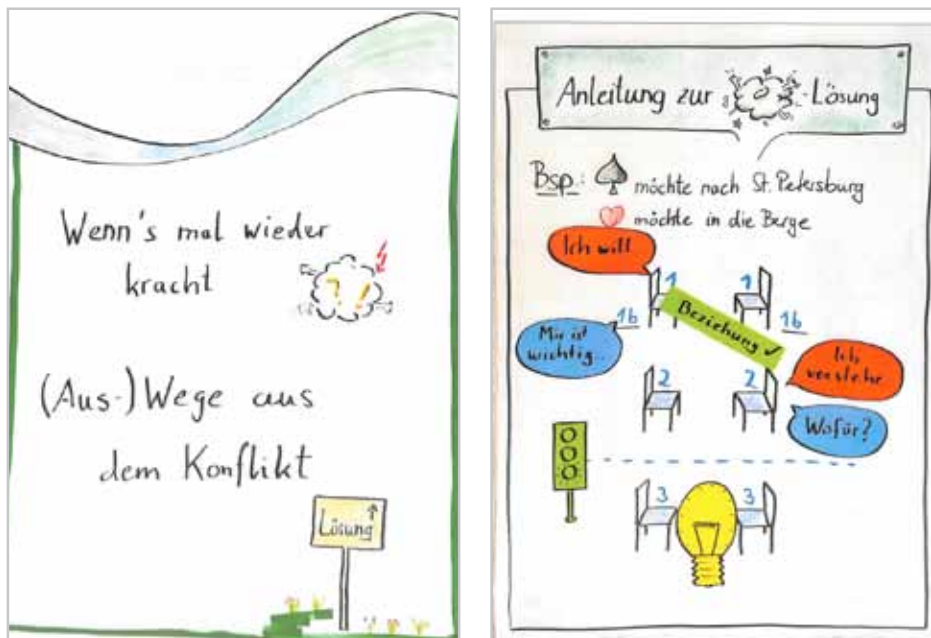 Wenn's mal wieder
kracht
? !
(Aus-)Wege aus
dem Konflikt
Lösung ↑
Anleitung zur -Lösung
Bsp.: ♠ möchte nach St. Petersburg
♥ möchte in die Berge
Ich will
1 1
Beziehung ✓
1b 1b
Mir ist
wichtig..
Ich
verstehe
2 2
Wofür?
3 3